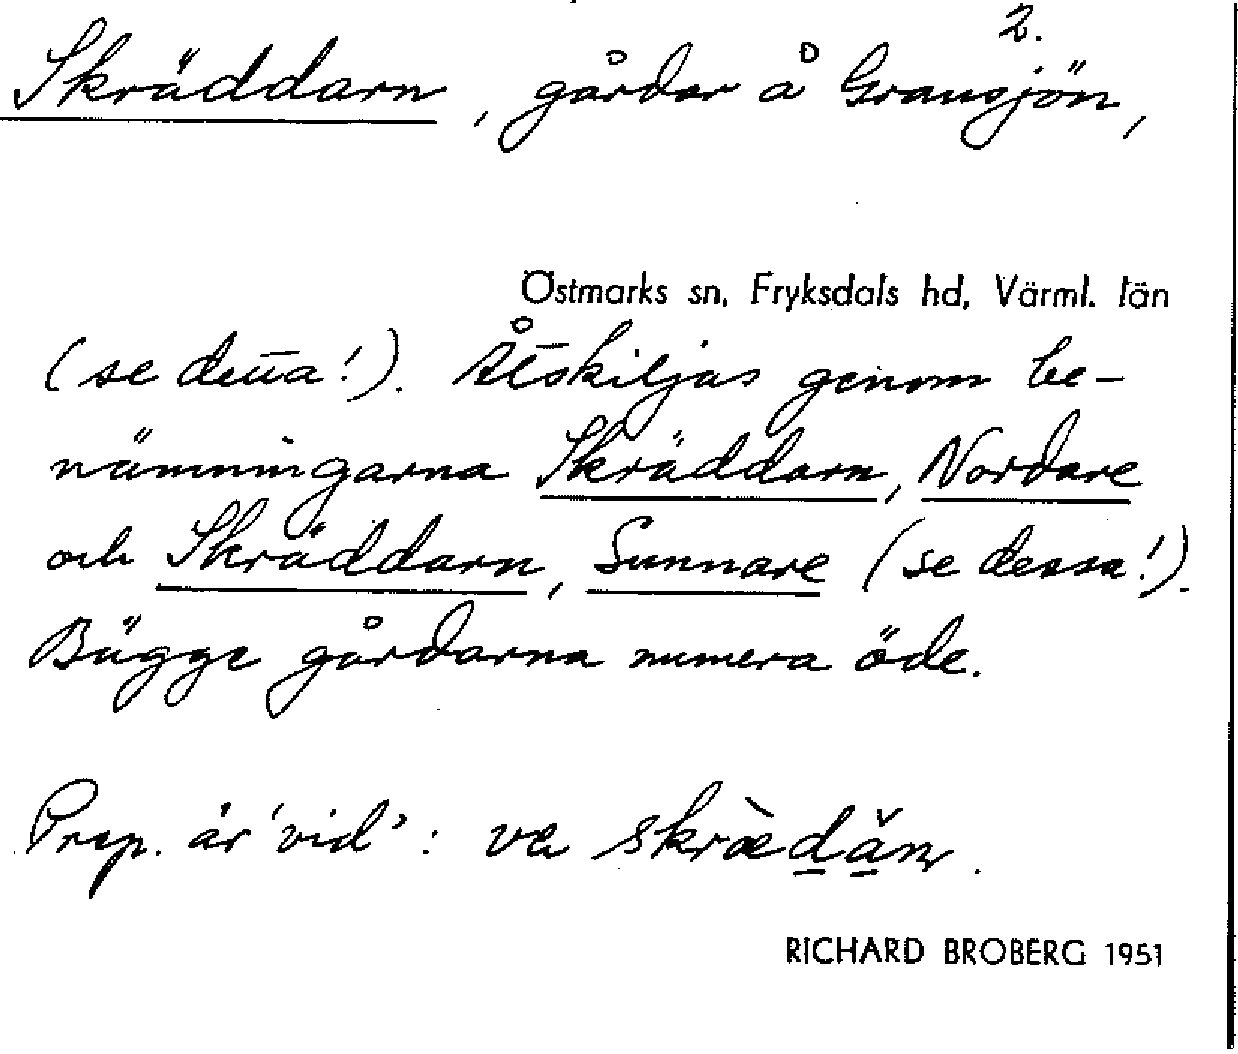 2.
Skräddarn, gårdar å Gransjön,
Östmarks sn, Fryksdals hd, Värml. län
(se detta!). Åtskiljas genom be-
nämningarna Skräddarn, Nordare
och Skräddarn, Sunnare (se dessa!).
Bägge gårdarna numera öde.
Prep. är 'vid': va
RICHARD BROBERG 1951